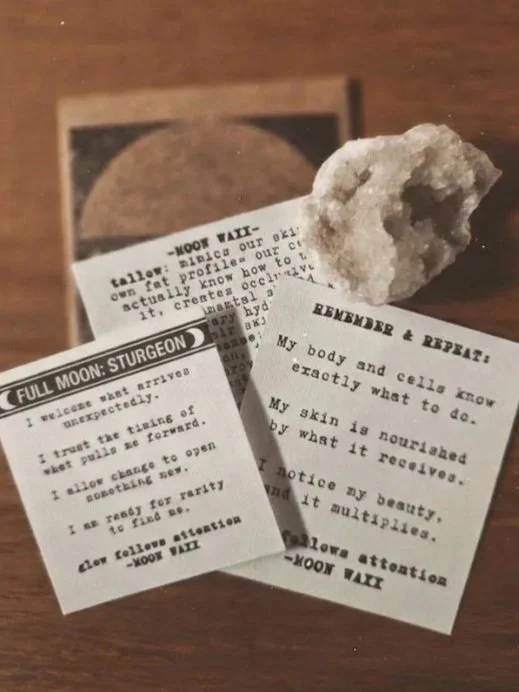 -MOON WAXX-
tallow: mimics our skin
own fat profile= our ce
actually know how to u
it, creates occlusiv
FULL MOON: STURGEON
I welcome what arrives
unexpectedly.
I trust the timing of
what pulls me forward.
I allow change to open
something new.
I am ready for rarity
to find me.
glow follows attention
-MOON WAXX
REMEMBER & REPEAT:
My body and cells know
exactly what to do.
My skin is nourished
by what it receives.
I notice my beauty,
and it multiplies.
follows attention
-MOON WAXX